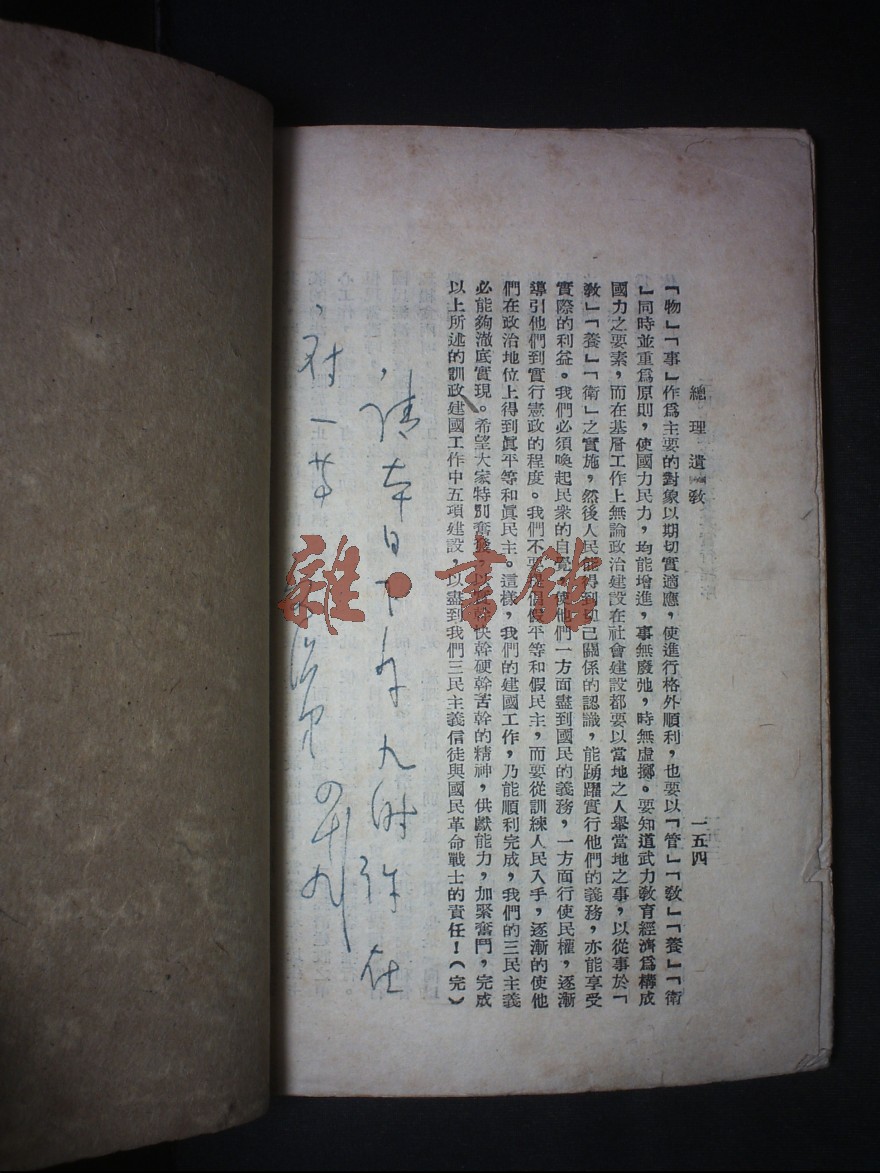 總理遺教
一五四
「物」「事」作爲主要的對象以期切實適應，使進行格外順利，也要以「管」「教」「養」「衛
」同時並重爲原則，使國力民力，均能增進，事無廢弛，時無虛擲。要知道武力教育經濟爲構成
國力之要素，而在基層工作上無論政治建設在社會建設都要以當地之人舉當地之事，以從事於「
教」「養」「衛」之實施，然後人民能得到切己關係的認識，能踴躍實行他們的義務，亦能享受
實際的利益。我們必須喚起民衆的自覺，使他們一方面盡到國民的義務，一方面行使民權，逐漸
導引他們到實行憲政的程度。我們不要提倡假平等和假民主，而要從訓練人民入手，逐漸的使他
們在政治地位上得到眞平等和眞民主。這樣，我們的建國工作，乃能順利完成，我們的三民主義
必能夠澈底實現。希望大家特別奮發，以實幹快幹硬幹苦幹的精神，供獻能力，加緊奮鬥，完成
以上所述的訓政建國工作中五項建設，以盡到我們三民主義信徒與國民革命戰士的責任！（完）
請本日下午九時 在
雜·書館